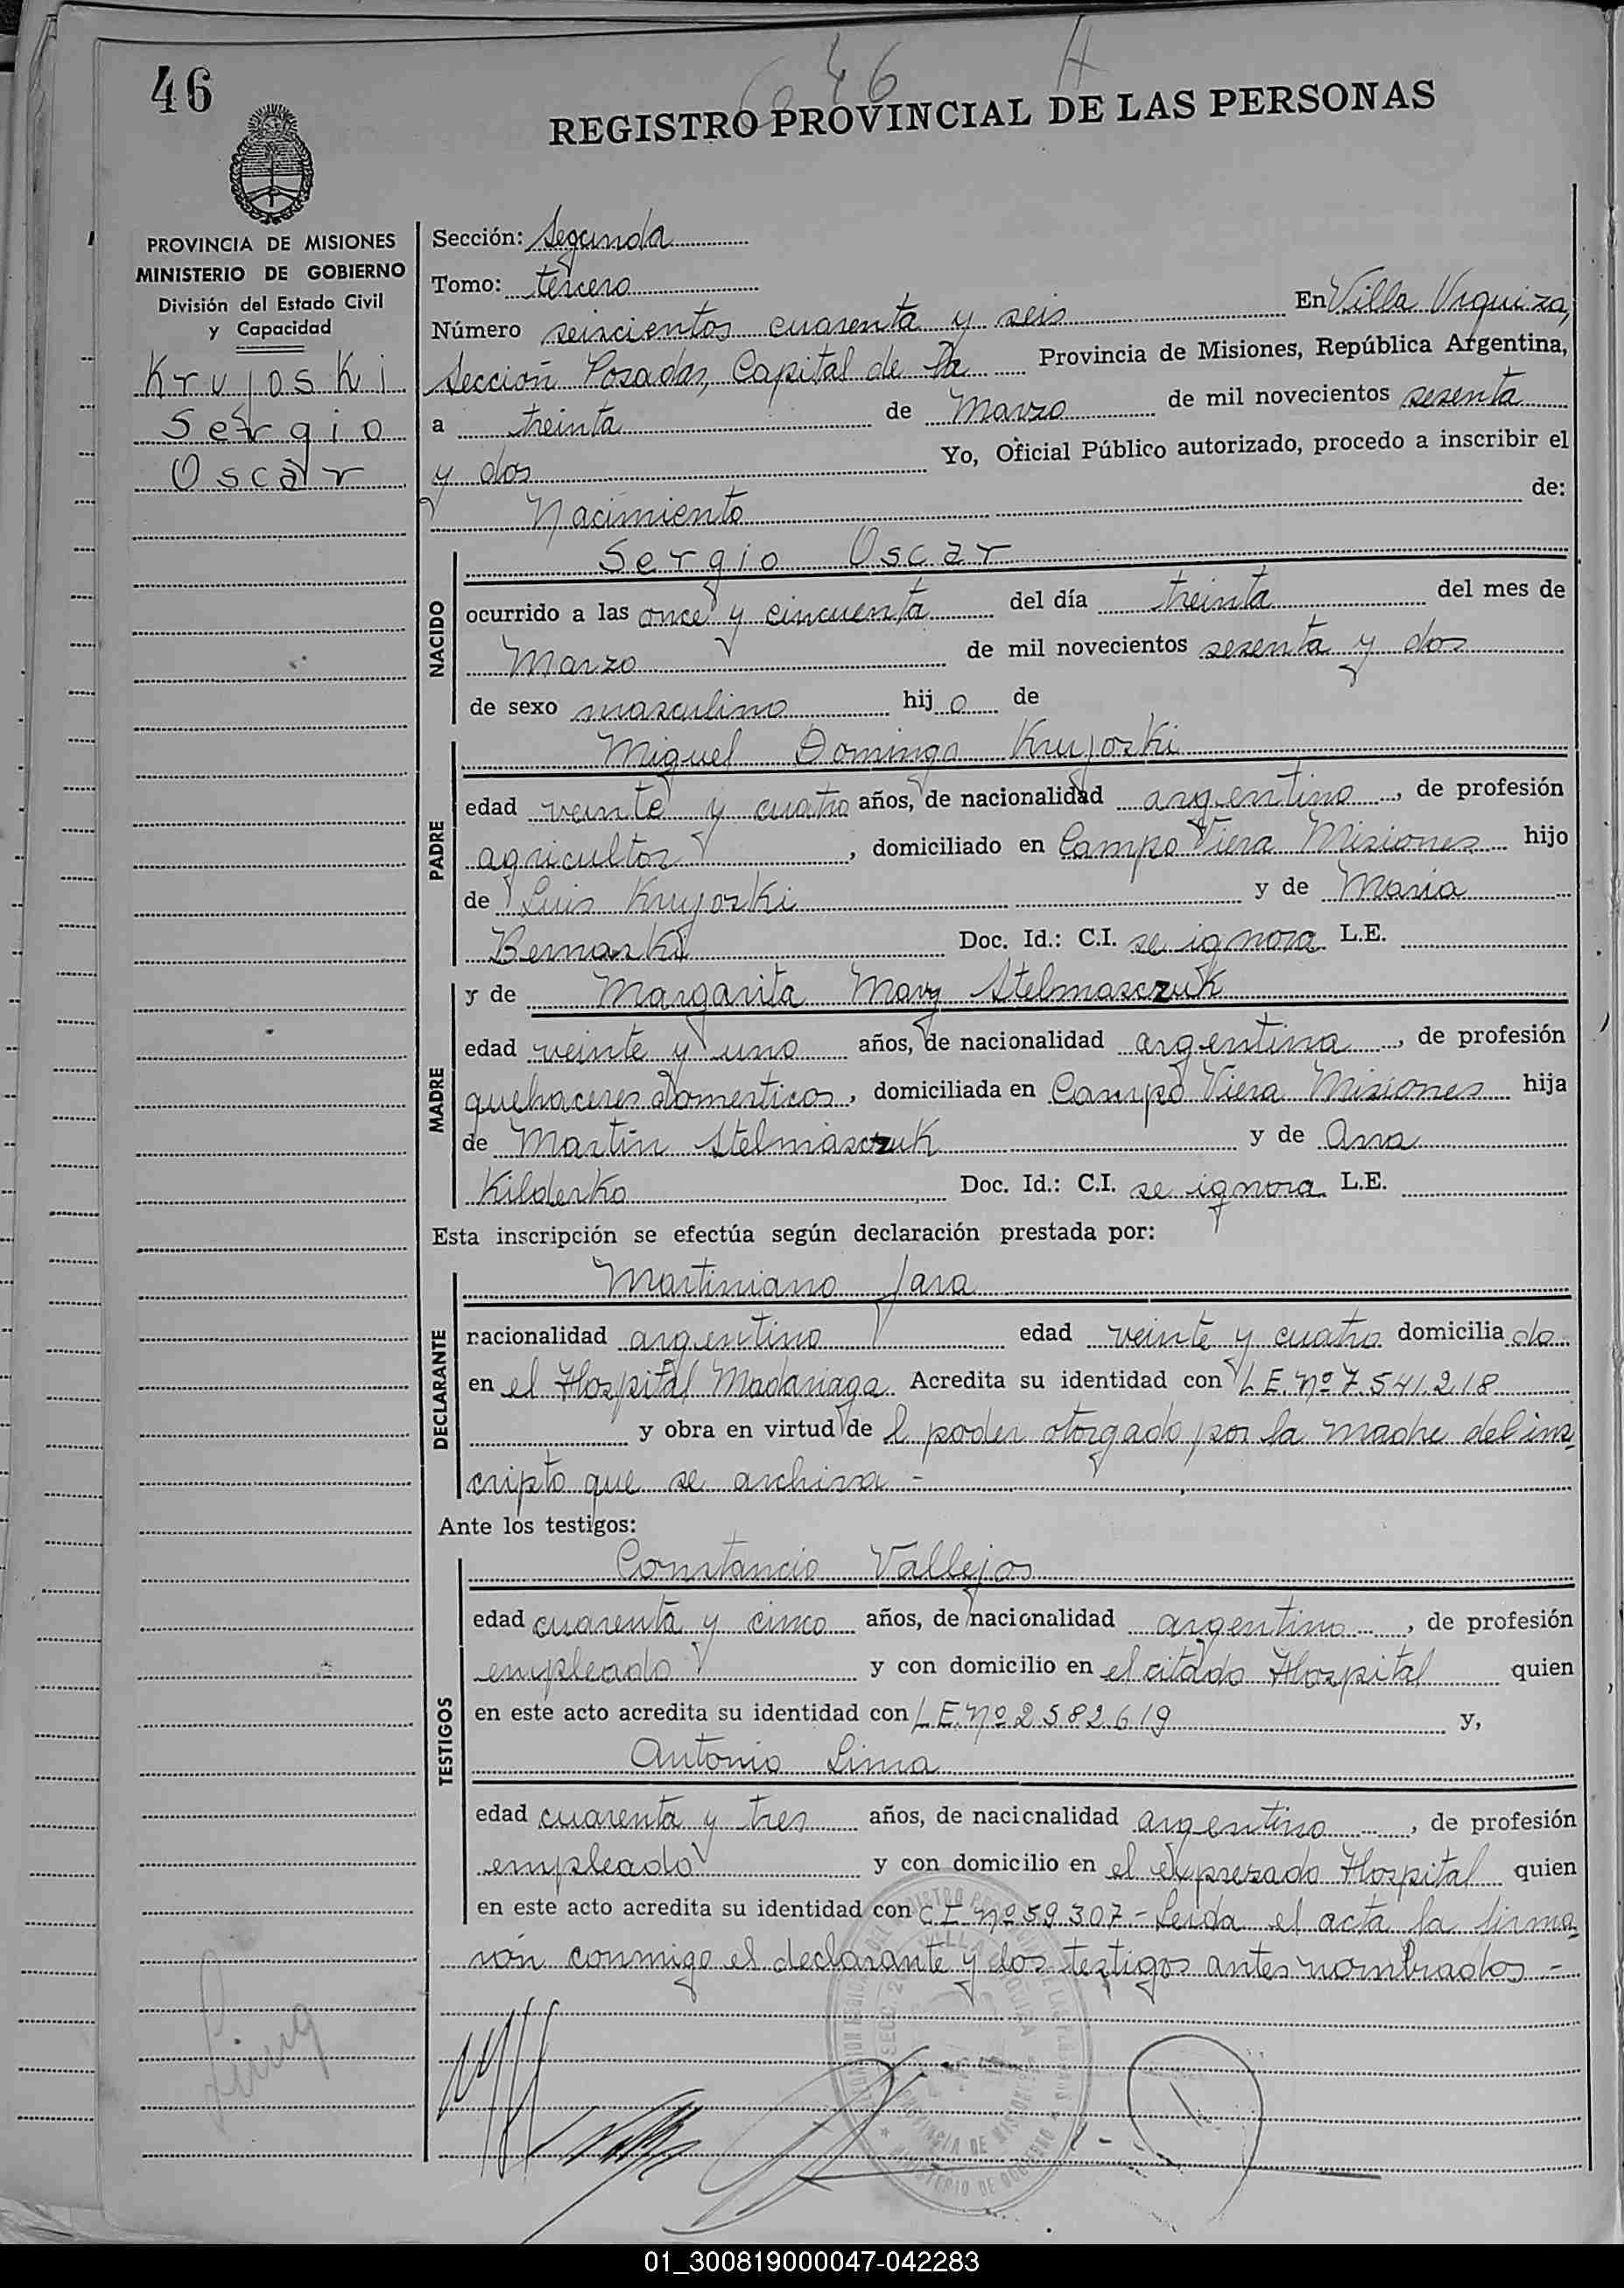 46
646
REGISTRO PROVINCIAL DE LAS PERSONAS
PROVINCIA DE MISIONES
MINISTERIO DE GOBIERNO
División del Estado Civil
y Capacidad
Krujoski
Sergio
Oscar
Sección: Segunda
Tomo: tercero
Número seiscientos cuarenta y seis En Villa Urquiza,
Sección Posadas, Capital de la Provincia de Misiones, República Argentina,
a treinta de Marzo de mil novecientos sesenta
y dos Yo, Oficial Público autorizado, procedo a inscribir el
Nacimiento de:
NACIDO
Sergio Oscar
ocurrido a las once y cincuenta del día treinta del mes de
Marzo de mil novecientos sesenta y dos
de sexo masculino hijo de
PADRE
Miguel Domingo Krujoski
edad veinte y cuatro años, de nacionalidad argentino, de profesión
agricultor, domiciliado en Campo Viera Misiones hijo
de Luis Krujoski y de Maria
Bernaski Doc. Id.: C.I. se ignora L.E.
MADRE
y de Margarita Mary Stelmasczuk
edad veinte y uno años, de nacionalidad argentina, de profesión
quehaceres domesticos, domiciliada en Campo Viera Misiones hija
de Martín Stelmasczuk y de Ana
Kilderko Doc. Id.: C.I. se ignora L.E.
Esta inscripción se efectúa según declaración prestada por:
DECLARANTE
Martiniano Jara
nacionalidad argentino edad veinte y cuatro domiciliado
en el Hospital Madariaga Acredita su identidad con L.E. Nº 7.541.218
y obra en virtud del poder otorgado por la madre del ins
cripto que se archiva.-
Ante los testigos:
TESTIGOS
Constancio Vallejos
edad cuarenta y cinco años, de nacionalidad argentino, de profesión
empleado y con domicilio en el citado Hospital quien
en este acto acredita su identidad con L.E. Nº 2.582.619 y,
Antonio Lima
edad cuarenta y tres años, de nacionalidad argentino, de profesión
empleado y con domicilio en el expresado Hospital quien
en este acto acredita su identidad con C.I. Nº 59.307 - Leida el acta la firma
rón conmigo el declarante y los testigos antes nombrados.-
PROVINCIA DE MISIONES
MINISTERIO DE GOBIERNO
01_300819000047-042283